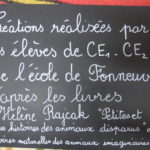 Créations réalisées par
les élèves de CE1. CE2
de l'école de Fonneuve
d'après les livres
d'Hélène Rajcak "Petites et
des histoires des animaux disparus" e
naturelles des animaux imaginaires